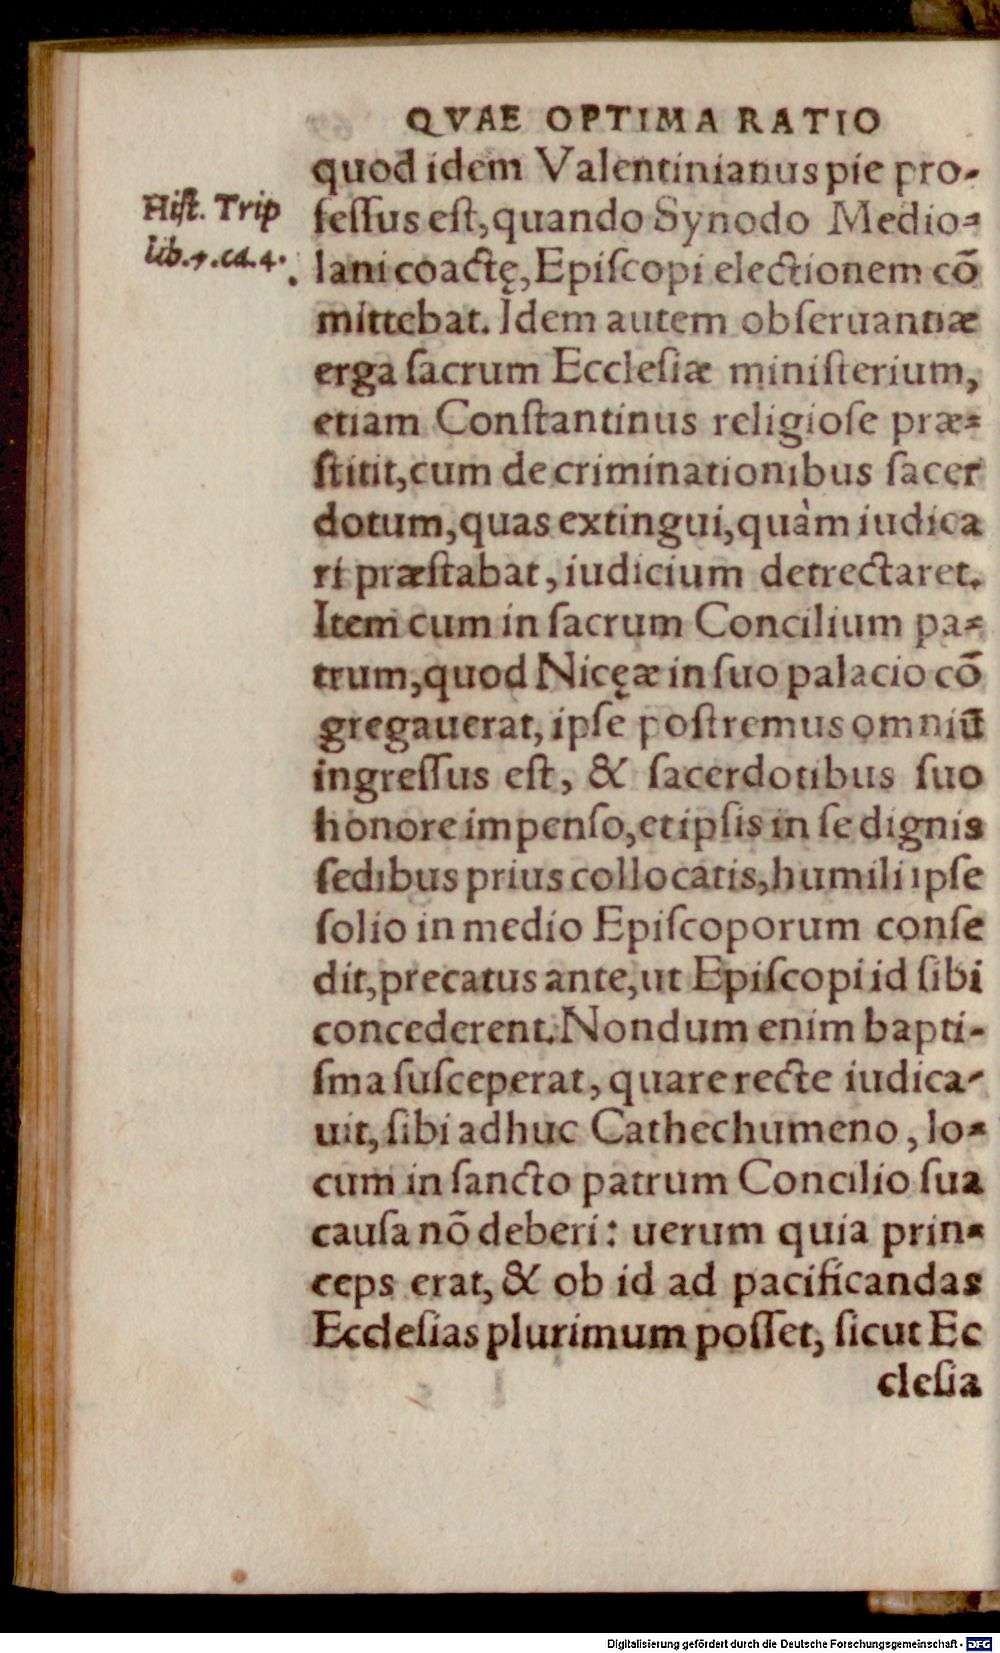 QVAE OPTIMA RATIO
quod idem Valentinianus pie pro-
feſſus eſt, quando Synodo Medio-
lani coactę, Epiſcopi electionem cō
mittebat. Idem autem obſeruantiæ
erga ſacrum Eccleſiæ miniſterium,
etiam Conſtantinus religioſe præ-
ſtitit, cum de criminationibus ſacer
dotum, quas extingui, quàm iudica
ri præſtabat, iudicium detrectaret.
Item cum in ſacrum Concilium pa-
trum, quod Nicęæ in ſuo palacio cō
gregauerat, ipſe poſtremus omniū
ingreſſus eſt, & ſacerdotibus ſuo
honore impenſo, et ipſis in ſe dignis
ſedibus prius collocatis, humili ipſe
ſolio in medio Epiſcoporum conſe
dit, precatus ante, ut Epiſcopi id ſibi
concederent. Nondum enim bapti-
ſma ſuſceperat, quare recte iudica-
uit, ſibi adhuc Cathechumeno, lo-
cum in ſancto patrum Concilio ſua
cauſa nō deberi: uerum quia prin-
ceps erat, & ob id ad pacificandas
Eccleſias plurimum poſſet, ſicut Ec
cleſia
Hiſt. Trip
lib.7.ca.4.
Digitalisierung gefördert durch die Deutsche Forschungsgemeinschaft - DFG